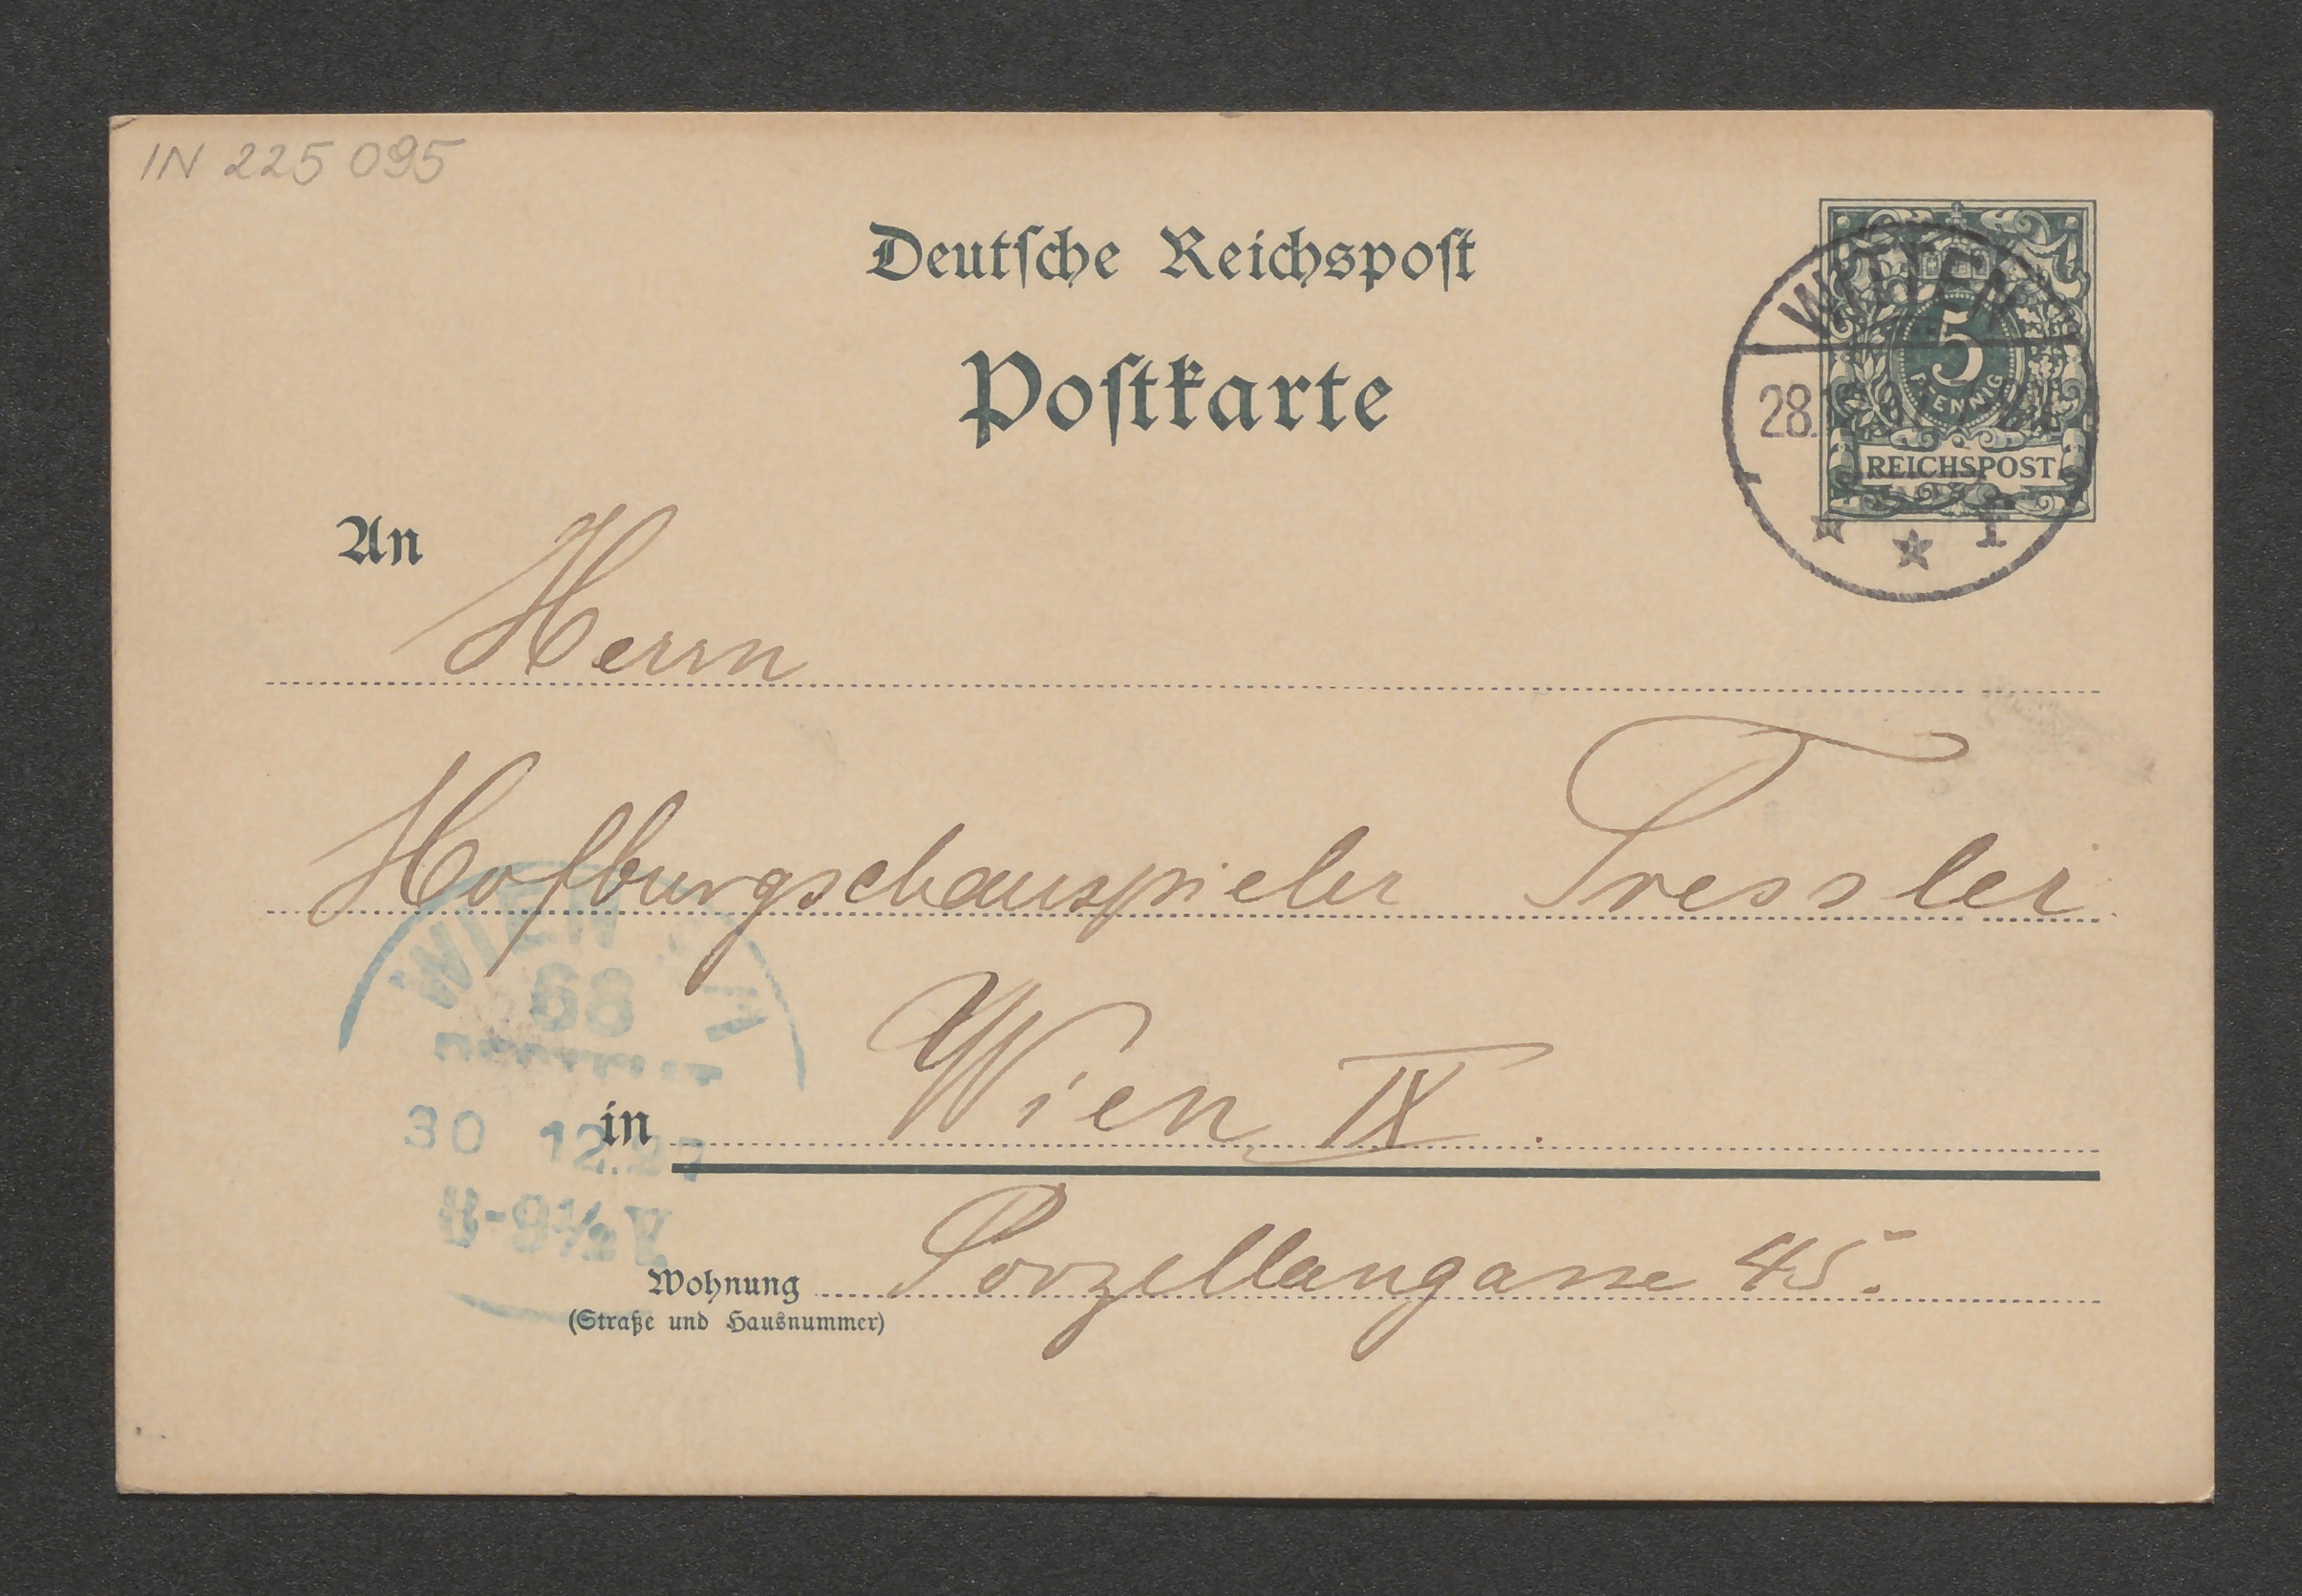 IN 225 095
Deutsche Reichspost
Postkarte
5
PFENNIG
REICHSPOST
WITTEN
28.
* * 1
An Herrn
Hofburgschauspieler Tressler
WIEN
68
in Wien IX.
30 12.97
8-9½ V
Wohnung Porzellangasse 45.
(Straße und Hausnummer)